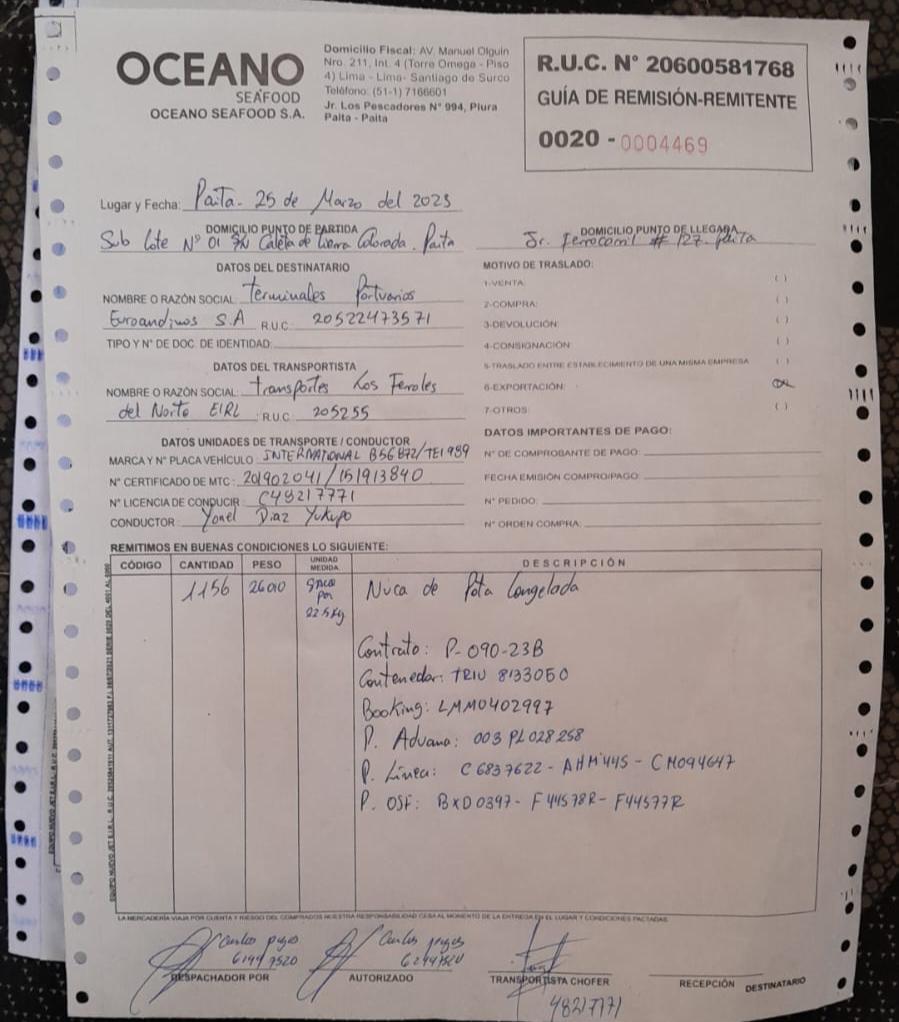 OCEANO
SEAFOOD
OCEANO SEAFOOD S.A.
Domicilio Fiscal: AV. Manuel Olguin
Nro. 211, Int. 4 (Torre Omega - Piso
4) Lima - Lima- Santiago de Surco
Teléfono: (51-1) 7166601
Jr. Los Pescadores N° 994, Piura
Paita - Paita
R.U.C. N° 20600581768
GUÍA DE REMISIÓN-REMITENTE
0020 - 0004469
Lugar y Fecha: Paita- 25 de Marzo del 2023
DOMICILIO PUNTO DE PARTIDA
Sub Lote N° 01 S/N Caleta de Tierra Colorada. Paita
DOMICILIO PUNTO DE LLEGADA
Jr. Ferrocarril # 127. Paita
DATOS DEL DESTINATARIO
NOMBRE O RAZÓN SOCIAL: Terminales Portuarios
Euroandinos S.A R.U.C. 20522473571
TIPO Y N° DE DOC. DE IDENTIDAD:
MOTIVO DE TRASLADO:
1-VENTA: ( )
2-COMPRA: ( )
3-DEVOLUCIÓN: ( )
4-CONSIGNACIÓN: ( )
5-TRASLADO ENTRE ESTABLECIMIENTO DE UNA MISMA EMPRESA ( )
6-EXPORTACIÓN:
7-OTROS: ( )
DATOS DEL TRANSPORTISTA
NOMBRE O RAZÓN SOCIAL: Transportes Los Feroles
del Norte EIRL R.U.C. 205255
DATOS UNIDADES DE TRANSPORTE / CONDUCTOR
MARCA Y N° PLACA VEHÍCULO: INTERNATIONAL B5G872/TE1989
N° CERTIFICADO DE MTC: 201902041/151913840
N° LICENCIA DE CONDUCIR C48217771
CONDUCTOR: Yonel Diaz Yukupo
DATOS IMPORTANTES DE PAGO:
N° DE COMPROBANTE DE PAGO:
FECHA EMISIÓN COMPRO/PAGO:
N° PEDIDO:
N° ORDEN COMPRA:
REMITIMOS EN BUENAS CONDICIONES LO SIGUIENTE:
CÓDIGO CANTIDAD PESO UNIDAD MEDIDA DESCRIPCIÓN
1156 26010 Saco Nuca de Pota Congelada
por
22.5 Kg
Contrato: P-090-23B
Contenedor: TRIU 8133050
Booking: LMM0402997
P. Aduana: 003 PL028258
P. Línea: C6837622 - AHM445 - CM094647
P. OSF: BXD0397- F44578R- F44577R
LA MERCADERÍA VIAJA POR CUENTA Y RIESGO DEL COMPRADOS NUESTRA RESPONSABILIDAD CESA AL MOMENTO DE LA ENTREGA EN EL LUGAR Y CONDICIONES PACTADAS.
Carlos
DESPACHADOR POR
Carlos
AUTORIZADO
TRANSPORTISTA CHOFER
48217771
RECEPCIÓN DESTINATARIO